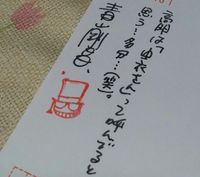 高明は、由衣さんって呼んでると
思う…多分…(笑)。
青山剛昌、